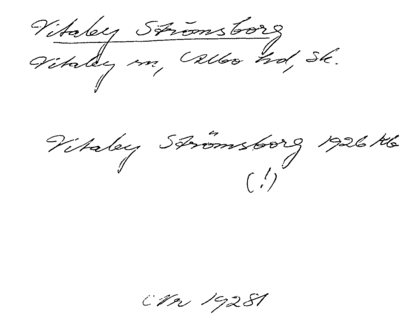 Vitaby Strömsborg
Vitaby sn, Albo hd, Sk.
Vitaby Strömsborg 1926 Kb
(!)
Nr 19281